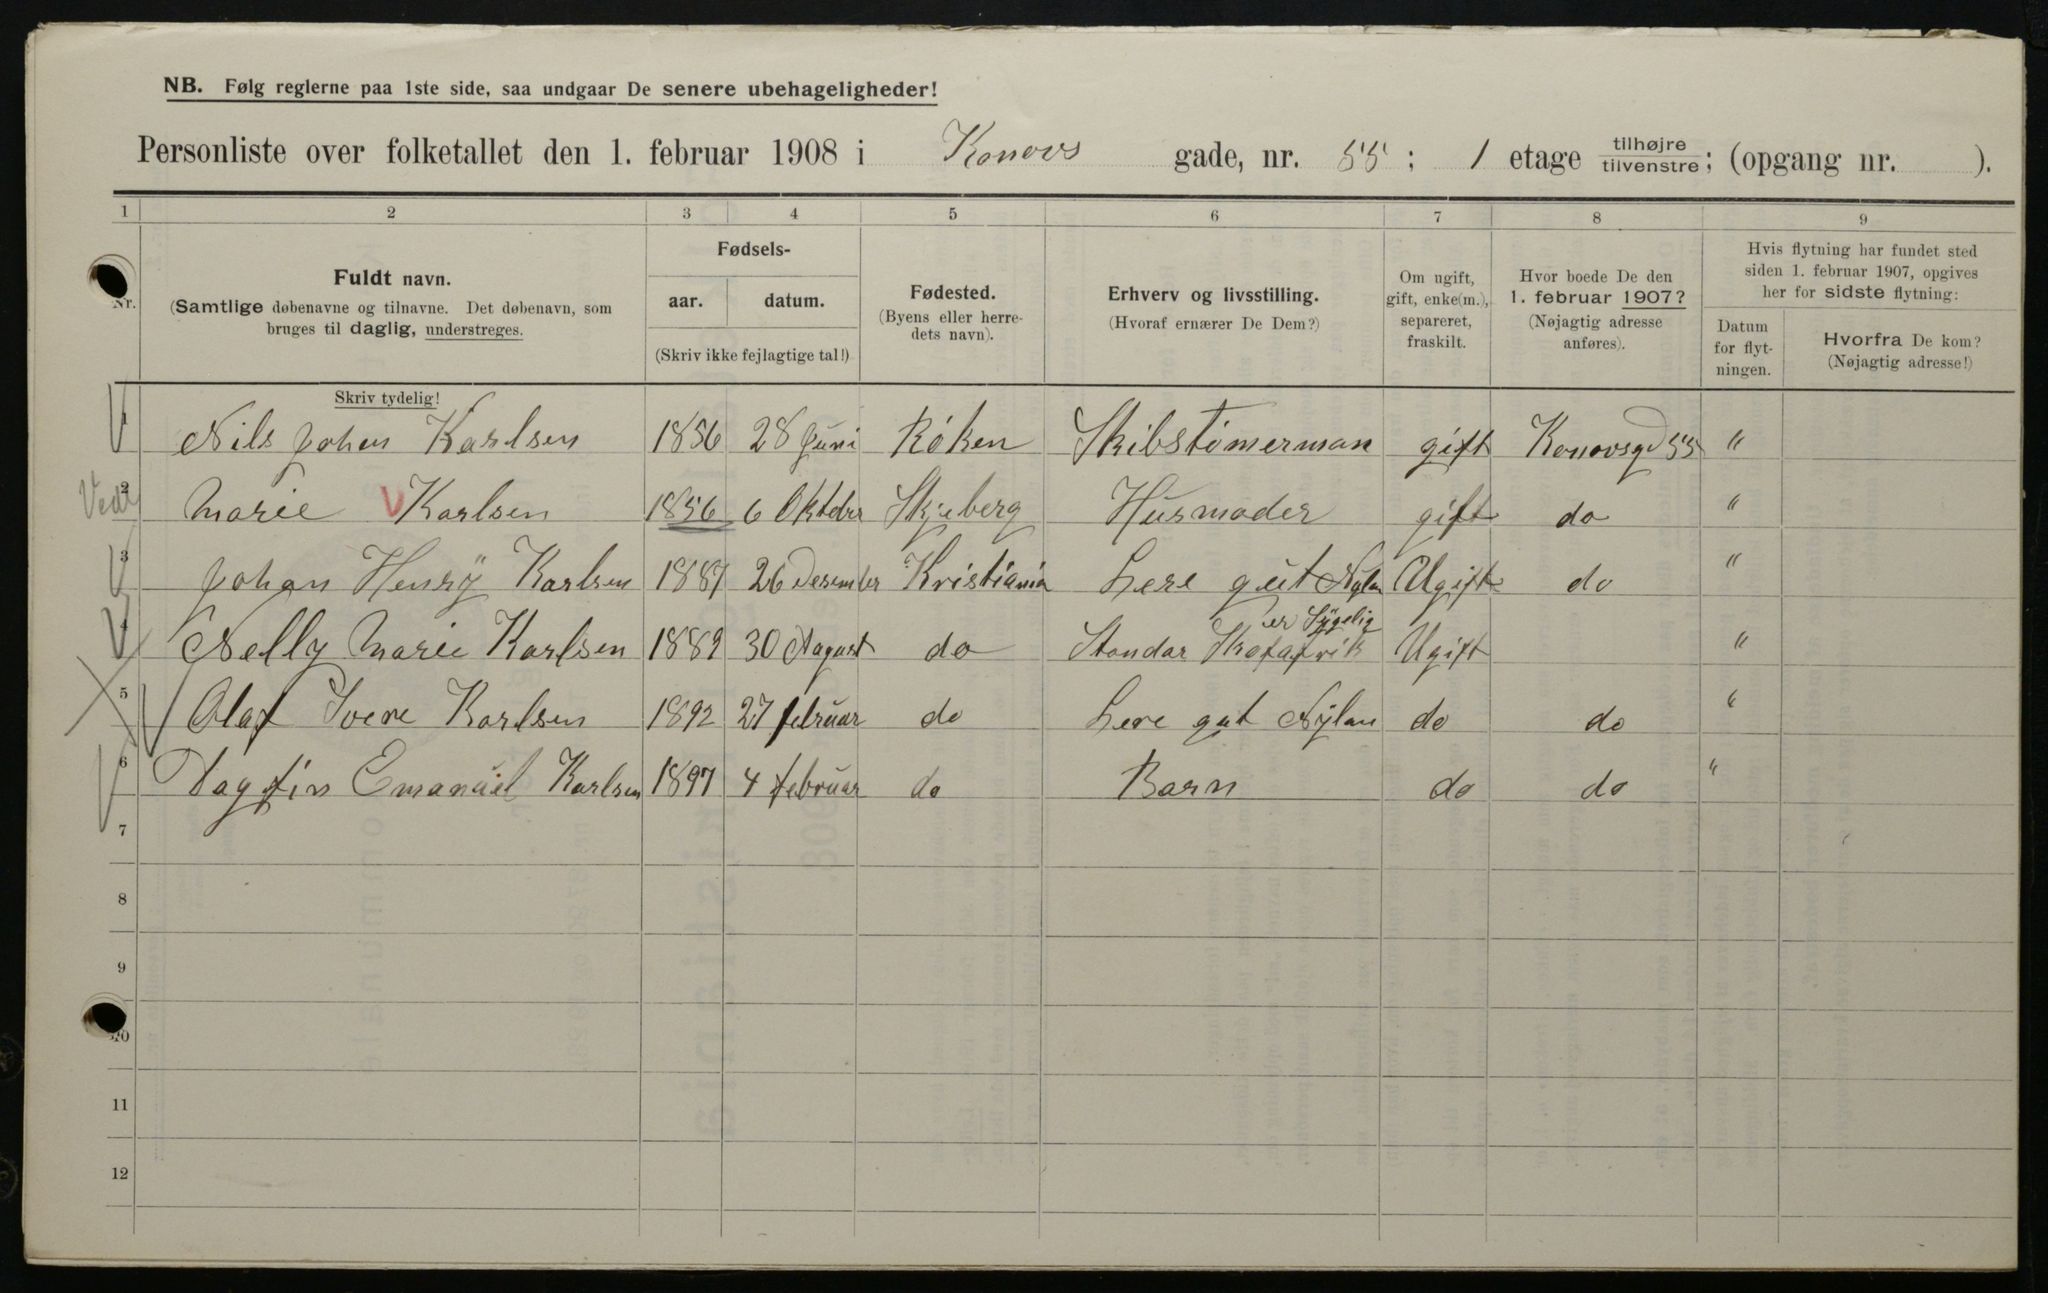 NB. Følg reglerne paa 1ste side, saa undgaar De senere ubehageligheder!
Personliste over folketallet den 1. februar 1908 i Konovs gade, nr. 55; 1 etage tilhøjre tilvenstre; (opgang nr. ).
1 2 3 4 5 6 7 8 9
Nr.
Fuldt navn.
(Samtlige døbenavne og tilnavne. Det døbenavn, som
bruges til daglig, understreges.
Skriv tydelig!
Fødsels-
aar. datum.
(Skriv ikke fejlagtige tal!)
Fødested.
(Byens eller herre-
dets navn).
Erhverv og livsstilling.
(Hvoraf ernærer De Dem?)
Om ugift,
gift, enke(m.),
separeret,
fraskilt.
Hvor boede De den
1. februar 1907?
(Nøjagtig adresse
anføres).
Hvis flytning har fundet sted
siden 1. februar 1907, opgives
her for sidste flytning:
Datum
for flyt-
ningen.
Hvorfra De kom?
(Nøjagtig adresse!)
1 Nils Johan Karlsen 1856 28 Juni Røken Skibstømerman gift Konovsgd 55 "
2 Marie Karlsen 1856 6 Oktober Skjeberg Husmoder gift do "
3 Johan Henrÿ Karlsen 1887 26 Desember Kristiania Lere gut Nylan Ugift do "
er Sÿgelig
4 Nelly Marie Karlsen 1889 30 August do Skofafrik Ugift "
5 Olaf Karlsen 1892 27 februar do Lere gut Nÿlan do do "
6 Dagfin Emanuel Karlsen 1897 4 februar do Barn do do "
7
8
9
10
11
12